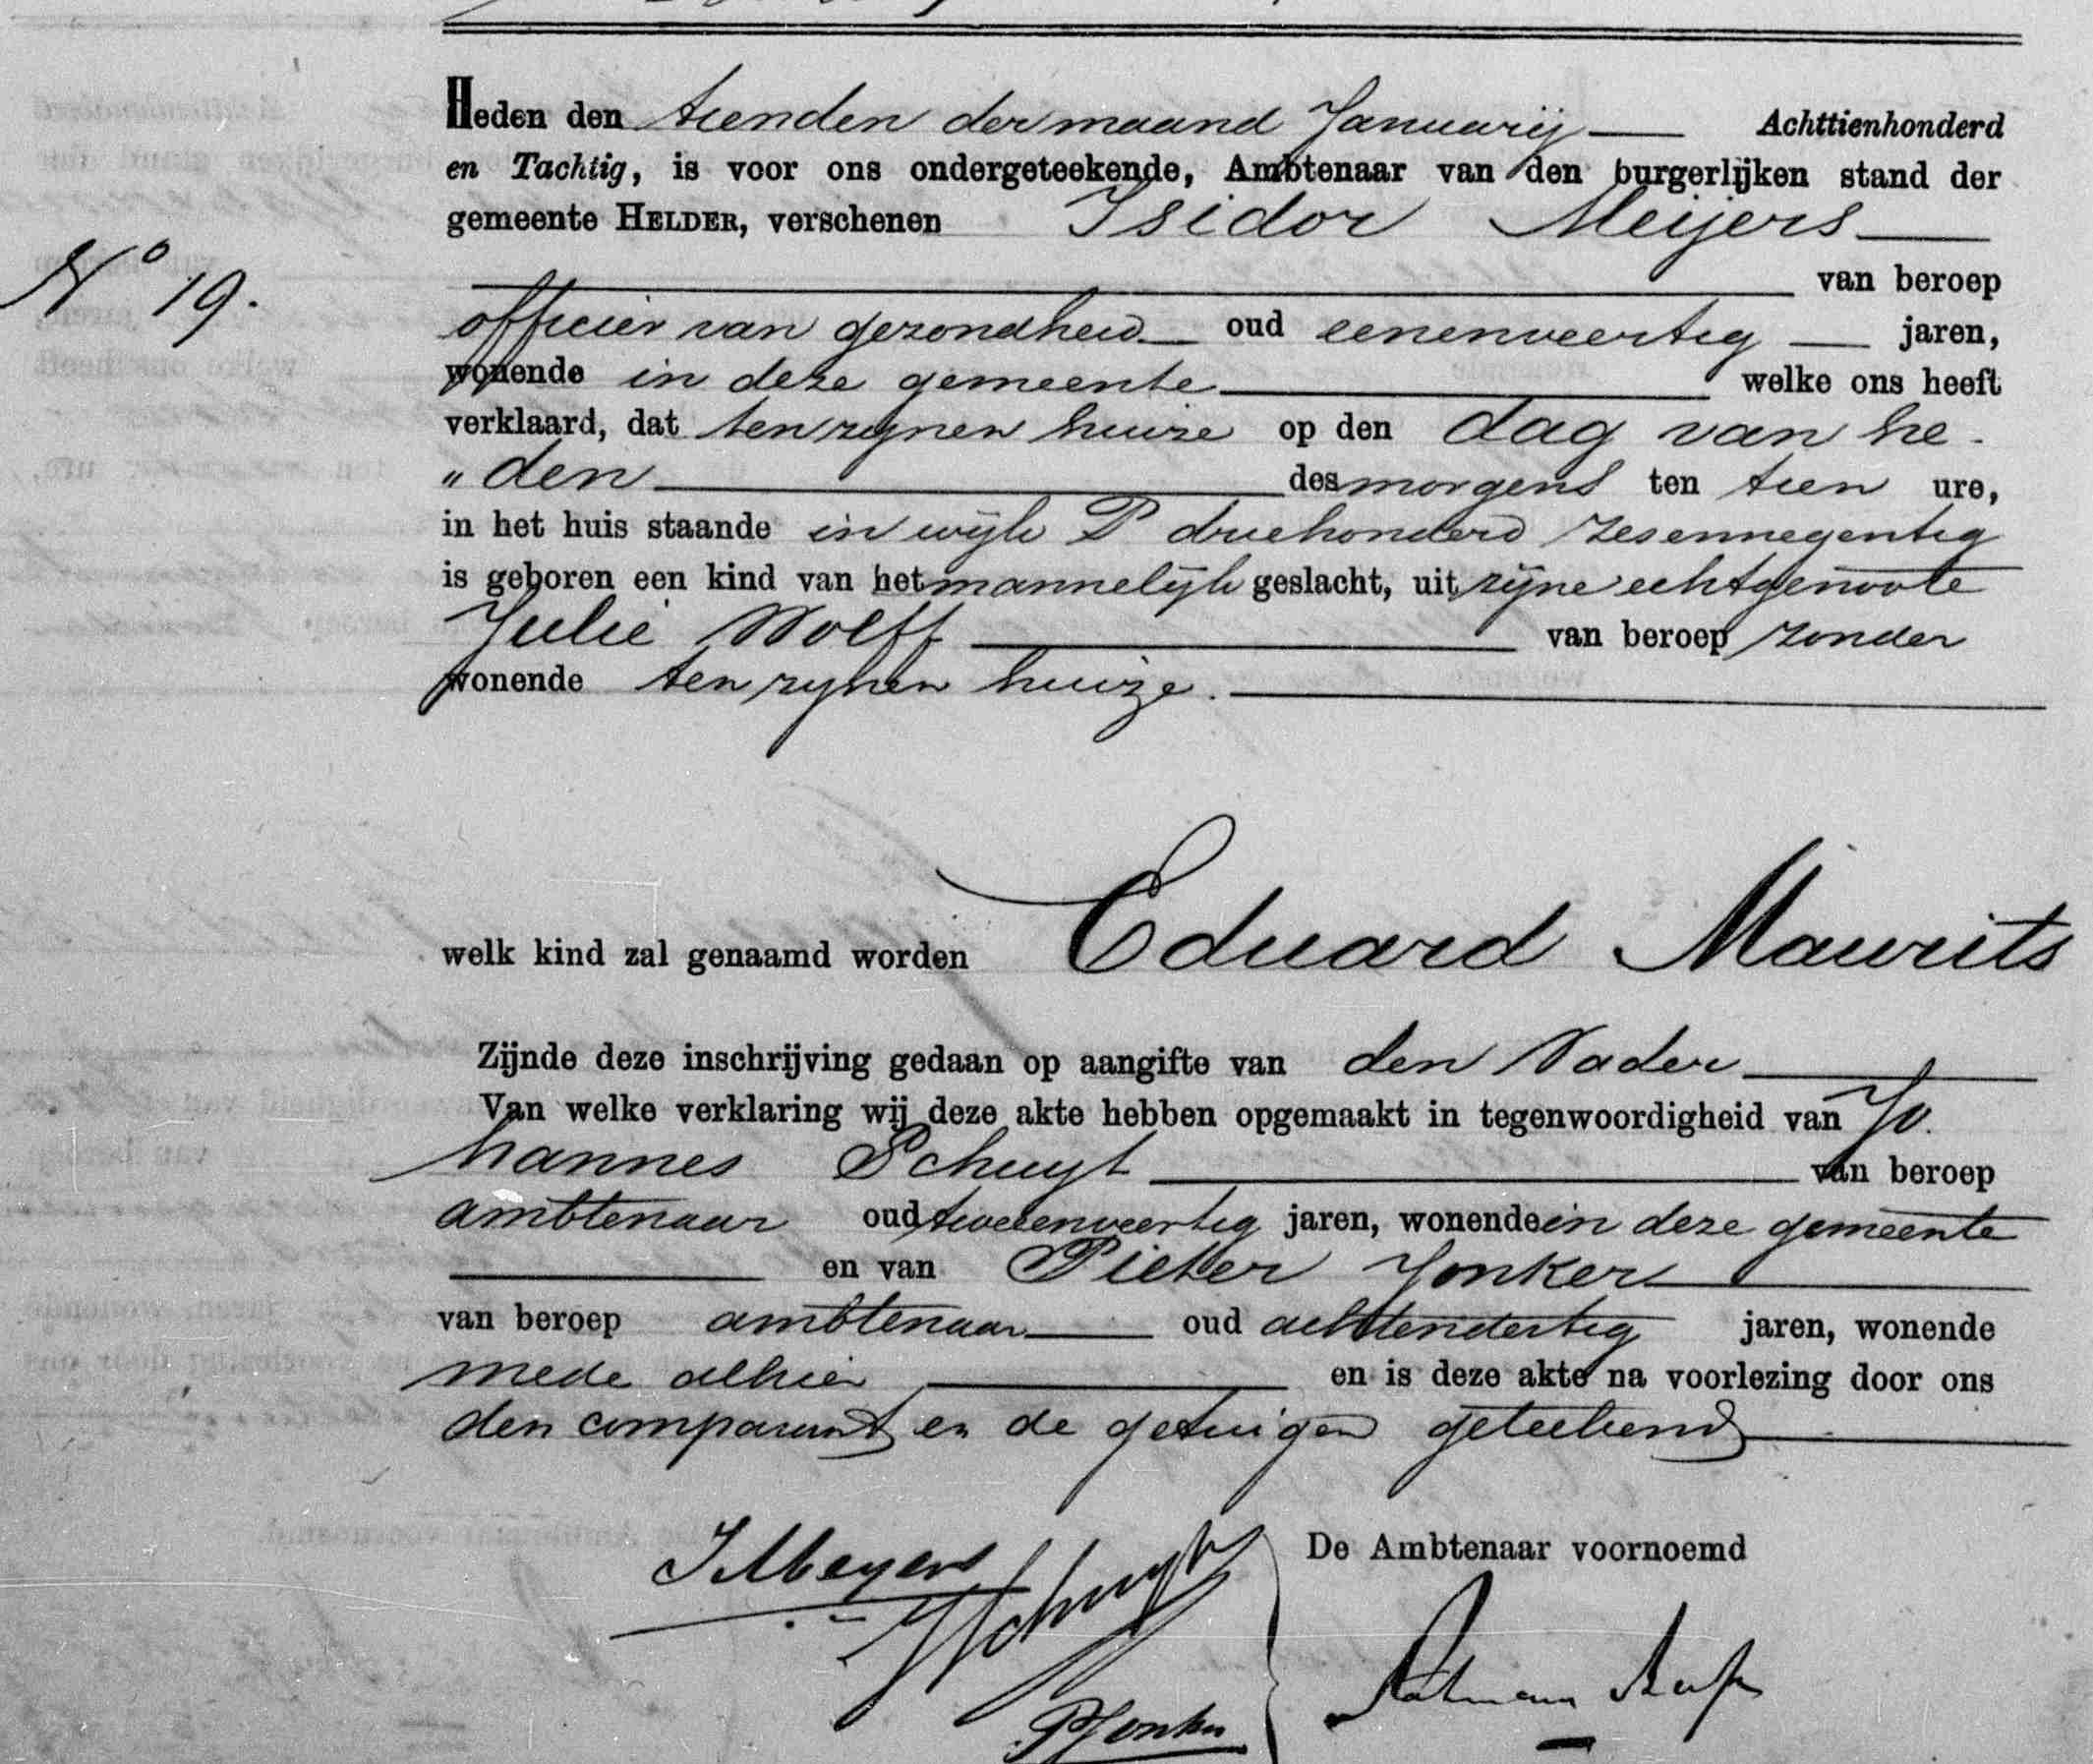 Heden den tienden der maand Januarij Achttienhonderd
en Tachtig, is voor ons ondergeteekende, Ambtenaar van den burgerlijken stand der
gemeente HELDER, verschenen Isidor Meijers
No 19.
van beroep
officier van gezondheid oud eenenveertig jaren,
wonende in deze gemeente welke ons heeft
verklaard, dat ten zijnen huize op den dag van he-
"den des morgens ten tien ure,
in het huis staande in wijk P driehonderd zesennegentig
is geboren een kind van het mannelijk geslacht, uit zijne echtgenoote
Julie Wolff van beroep zonder
wonende ten zijnen huize.
welk kind zal genaamd worden Eduard Maurits
Zijnde deze inschrijving gedaan op aangifte van den Vader
Van welke verklaring wij deze akte hebben opgemaakt in tegenwoordigheid van Jo.
hannes Schuyt van beroep
ambtenaar oud tweeenveertig jaren, wonende in deze gemeente
en van Pieter Jonker
van beroep ambtenaar oud achtendertig jaren, wonende
mede alhier en is deze akte na voorlezing door ons
den comparant en de getuigen geteekend
De Ambtenaar voornoemd
I Meyers
JSchuyt
PJonker